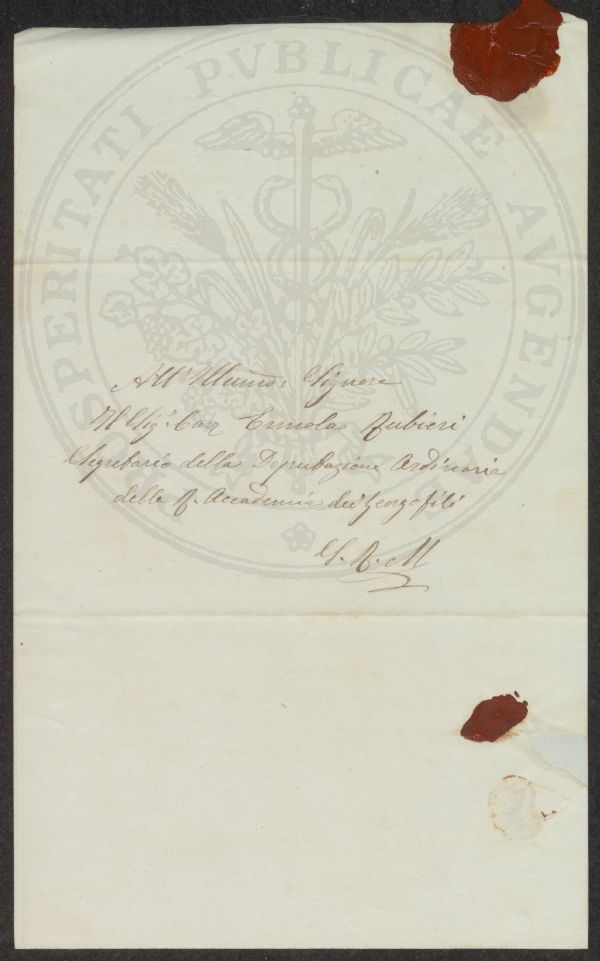 PROSPERITATI PVBLICAE AVGENDAE
All' Illumo: Signore
Il Sigr. Cav Ermolao Rubieri
Segretario della Deputazione Ordinaria
della R. Accademia dei Georgofili
S. R. M